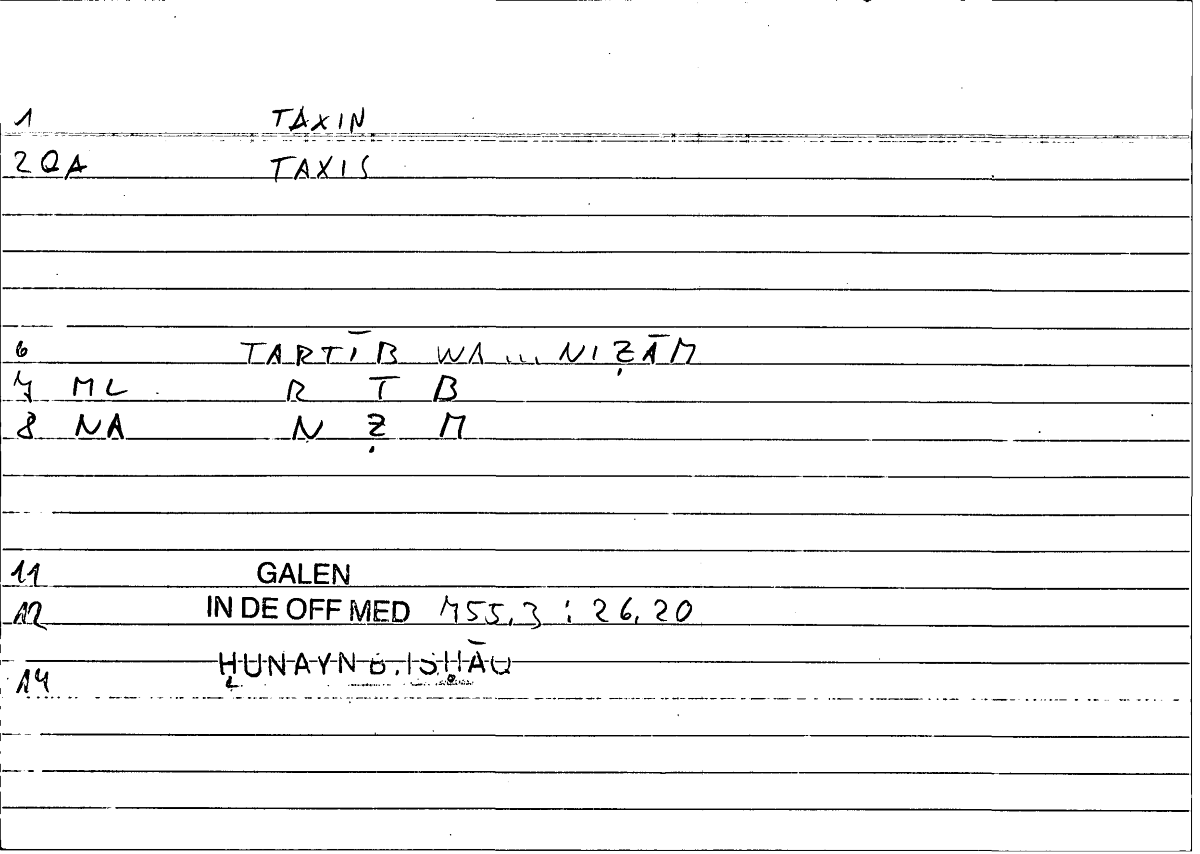 1 TAXIN
2 QA TAXIS
6 TARTĪB WA ... NIẒĀM
7 ML R T B
8 NA N Ẓ M
11 GALEN
12 IN DE OFF MED 755,3 : 26,20
14 ḤUNAYN B. ISḤĀQ